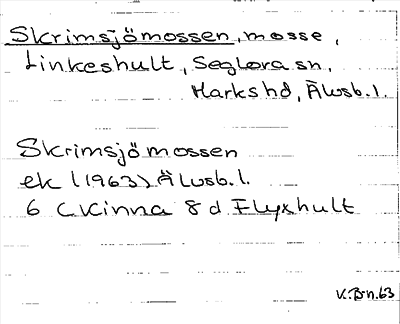 Skrimsjömossen, mosse,
Linkeshult, Seglora sn,
Marks hd, Älvsb. l.
Skrimsjömossen
ek (1963) Älvsb. l.
6 C Kinna 8 d Flyxhult
V. Bn. 63